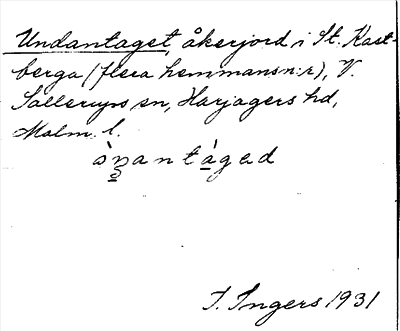 Undantaget, åkerjord i St. Kast-
berga (flera hemmansn:r), V.
Sallerups sn, Harjagers hd,
Malm. l.
ònantàged
I. Ingers 1931